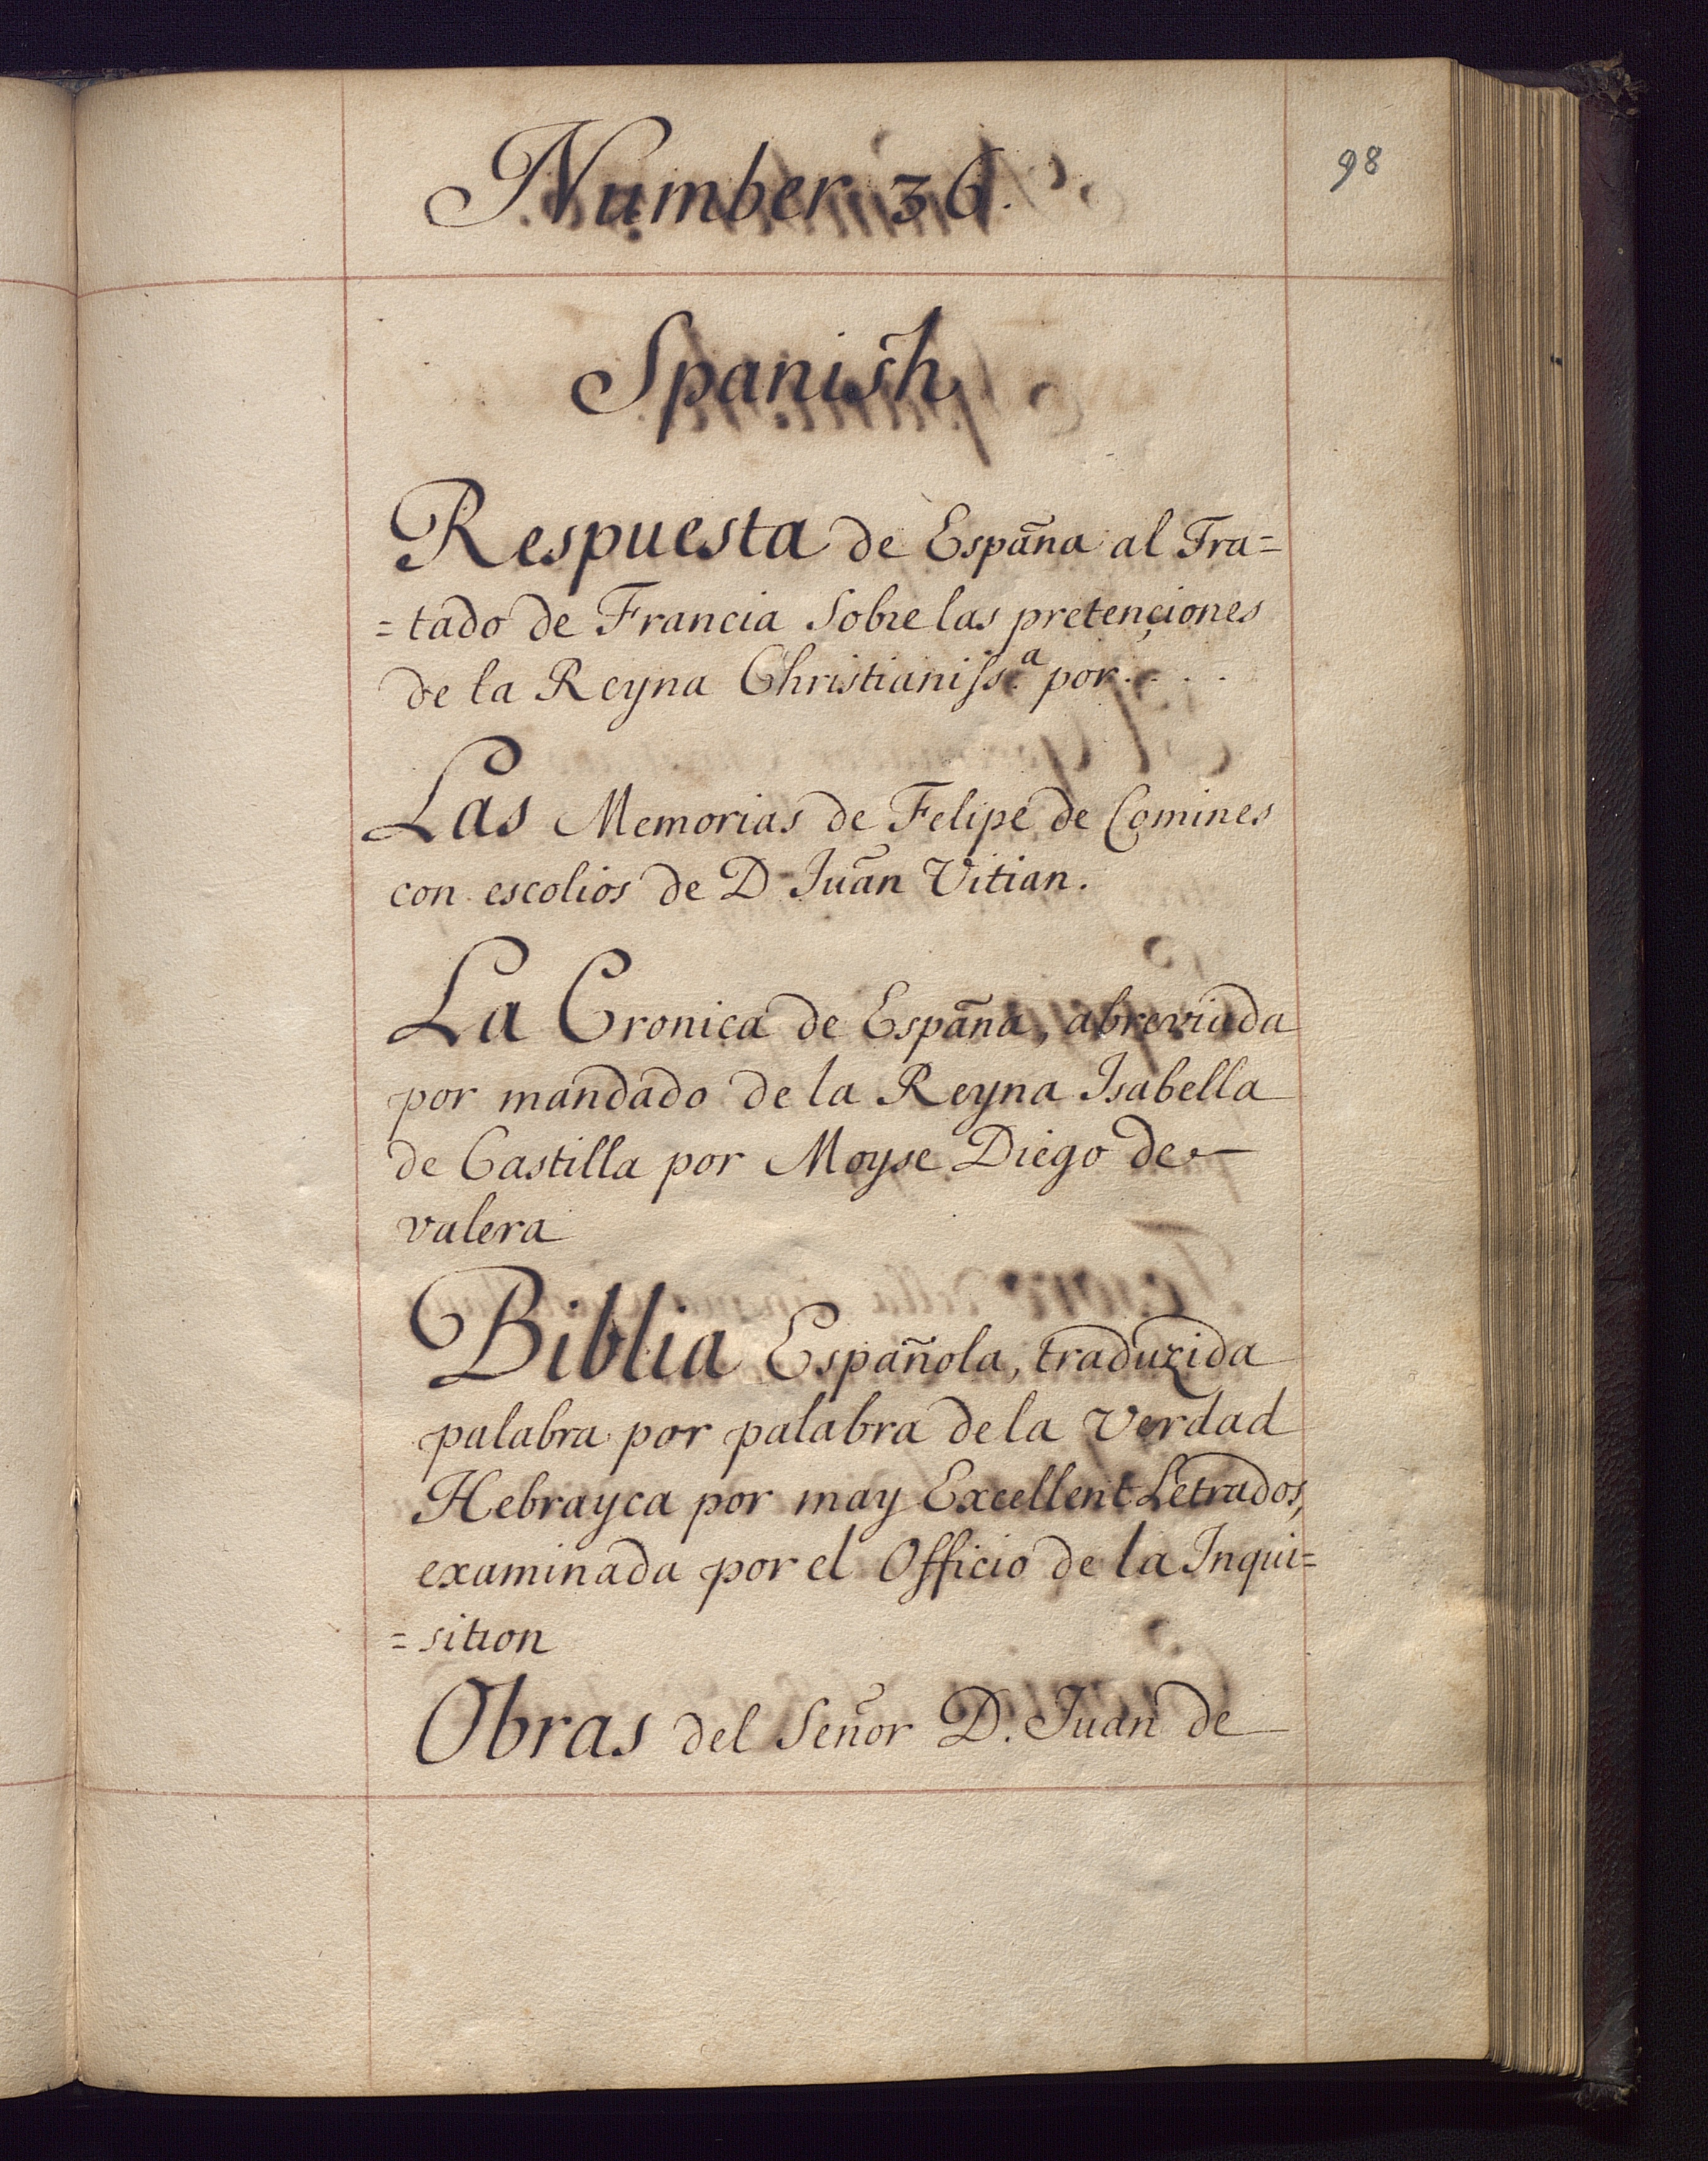 98
Number 36.
Spanish
Respuesta de España al Tra=
=tado de Francia Sobre las pretençiones
de la Reyna Christianiss.ª por . . . .
Las Memorias de Felipe de Comines
con escolios de D Juan Vitian.
La Cronica de España, abreviada
por mandado de la Reyna Isabella
de Castilla por Moyse Diego de
valera
Biblia Española, traduzida
palabra por palabra de la Verdad
Hebrayca por may Excellent Letrados,
examinada por el Officio de la Inqui=
=sition
Obras del Señor D. Juan de